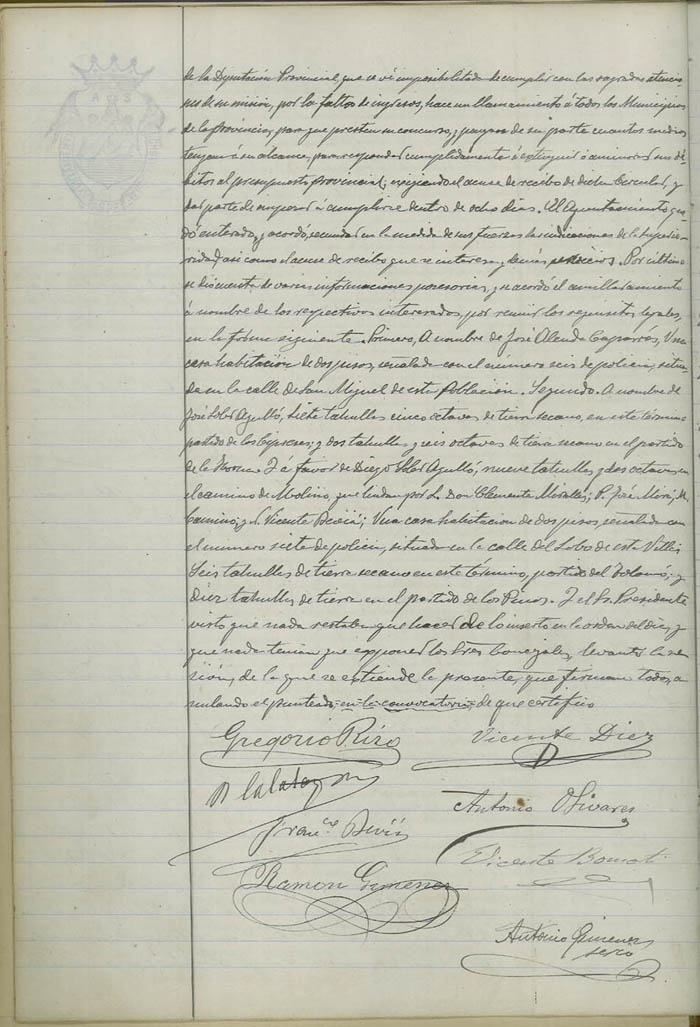 de la Diputación Provincial, que se vé imposibilitada de cumplir con las sagradas atencio-
nes de su misión, por la falta de ingresos, hace un llamamiento á todos los Municipios
de la provincia, para que presten su concurso, y pongan de su parte cuantos medios
tengan á su alcance, para responder cumplidamente á extinguir ó aminorar sus dé-
bitos al presupuesto provincial; exigiendo el acuse de recibo de dicha Circular, y
dar parte de empezar á cumplirse dentro de ocho dias. El Ayuntamiento que-
dó enterado, y acordó, secundar en la medida de sus fuerzas las indicaciones de la Superio-
ridad, asi como el acuse de recibo que se interesa, y demás. Por último
se dió cuenta de varias informaciones posesorias, y se acordó el amillaramiento
á nombre de los respectivos interesados, por reunir los requisitos legales,
en la forma siguiente. Primero, A nombre de José Alenda Caparrós, Una
casa habitación de dos pisos, señalada con el número seis de policia, situa-
da en la calle de San Miguel de esta población. Segundo. A nombre de
José Soler Agulló, siete tahullas cinco octavas de tierra secano, en este término
partido de los Cipreses; y dos tahullas y seis octavas de tierra secano en el partido
de la. Y á favor de Diego Soler Agulló, nueve tahullas y dos octavas, en
el camino de Molino, que lindan por L. Don Clemente Miralles; P. José Mira; M.
Camino; y N. Vicente; Una casa habitacion de dos pisos, señalada con
el numero siete de policia, situada en la calle del Lobo de esta Villa;
Seis tahullas de tierra secano en este término, partido del; y
Diez tahullas de tierra en el partido de los Pinos. Y el Sr. Presidente
visto que nada restaba que hacer de lo inserto en la orden del dia, y
que nada tenian que exponer los Sres. Concejales, levantó la se-
sión, de la que se extiende la presente, que firman todos, a-
nulando el punteado en la convocatoria, de que certifico
Gregorio Rizo
Vicente Diez
Antonio Olivares
Franco
Vicente
Ramon Gimenez
Antonio Gimenez
serio